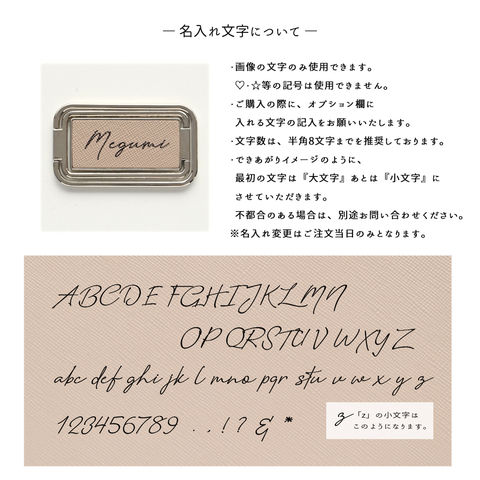 ― 名入れ文字について ―
Megumi
·画像の文字のみ使用できます。
♡·☆等の記号は使用できません。
·ご購入の際に、オプション欄に
入れる文字の記入をお願いいたします。
·文字数は、半角8文字までを推奨しております。
·できあがりイメージのように、
最初の文字は『大文字』あとは『小文字』に
させていただきます。
不都合のある場合は、別途お問い合わせください。
※名入れ変更はご注文当日のみとなります。
ABCDEFGHIJKLMN
OPQRSTUVWXYZ
abc def ghi jk l mno pqr stu v w x y z
123456789 . , ! ? & *
z 「z」の小文字は
このようになります。